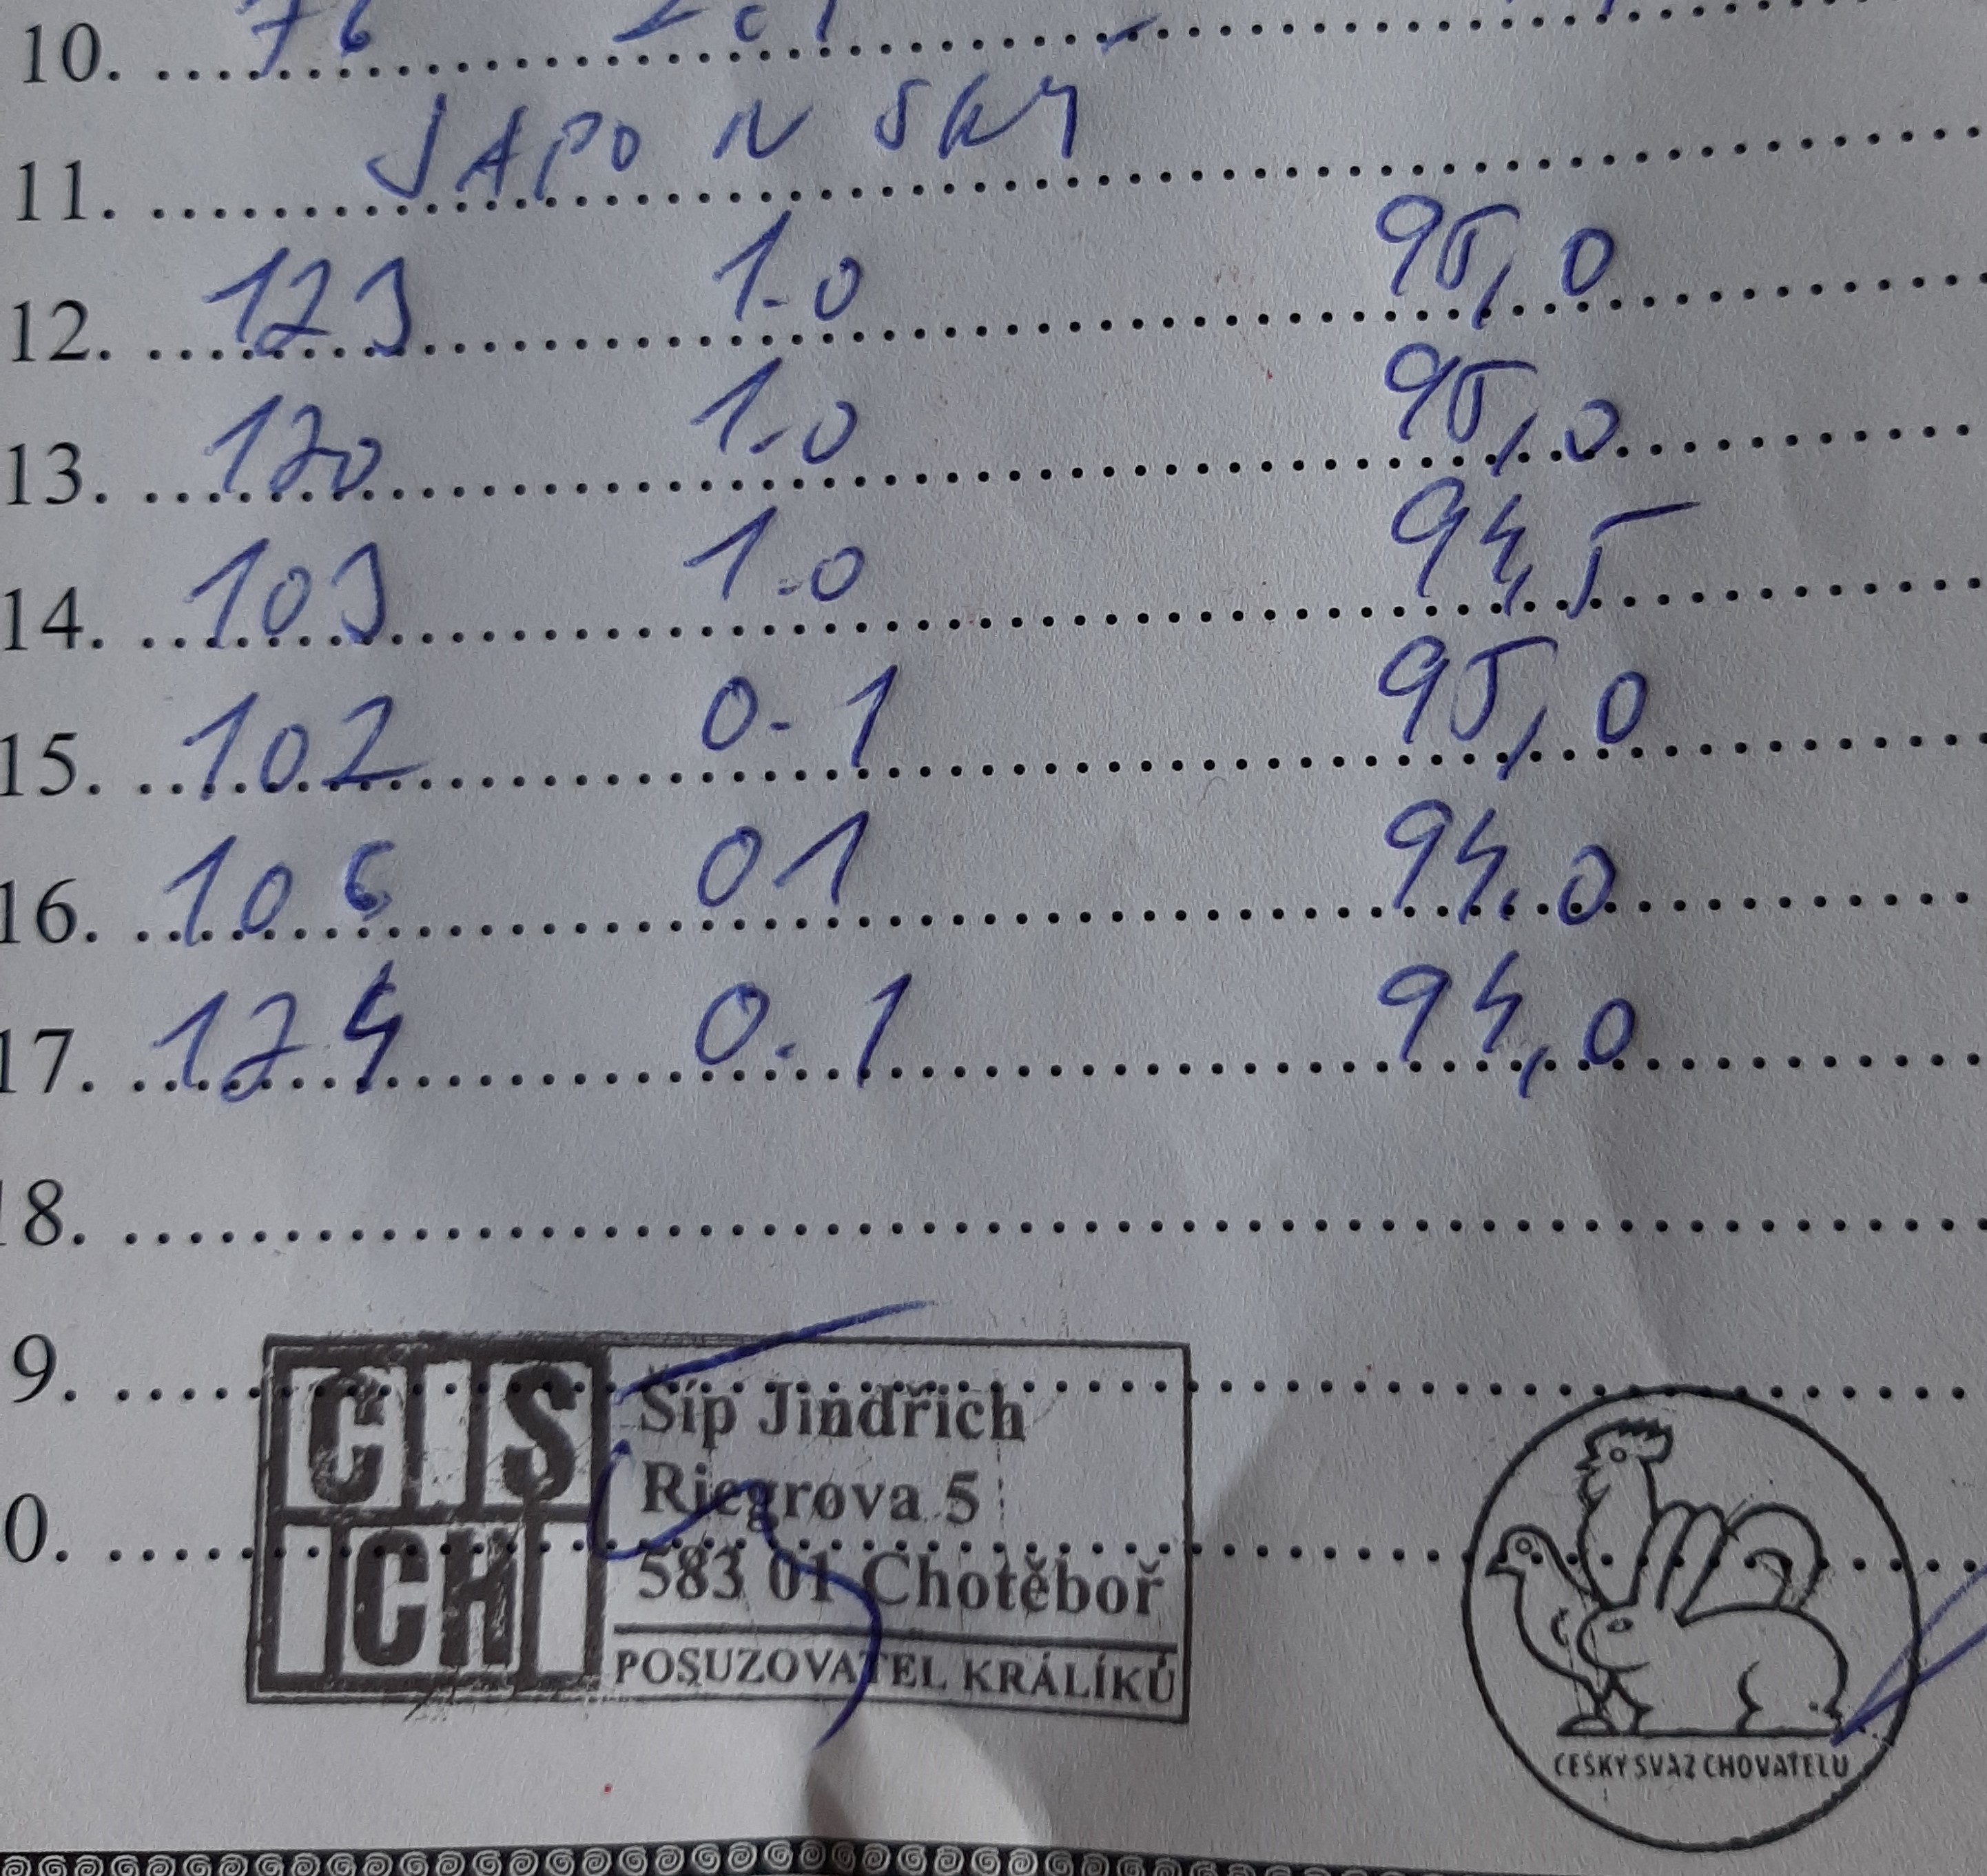 10. 76
11. JAPONSKÝ
12. 123 1.0 95,0
13. 120 1.0 95,0
14. 103 1.0 94,5
15. 102 0.1 95,0
16. 106 01 94.0
17. 124 0.1 94,0
18.
9.
0.
CS
CH
Šíp Jindřich
Riegrova 5
583 01 Chotěboř
POSUZOVATEL KRÁLÍKŮ
ČESKÝ SVAZ CHOVATELŮ